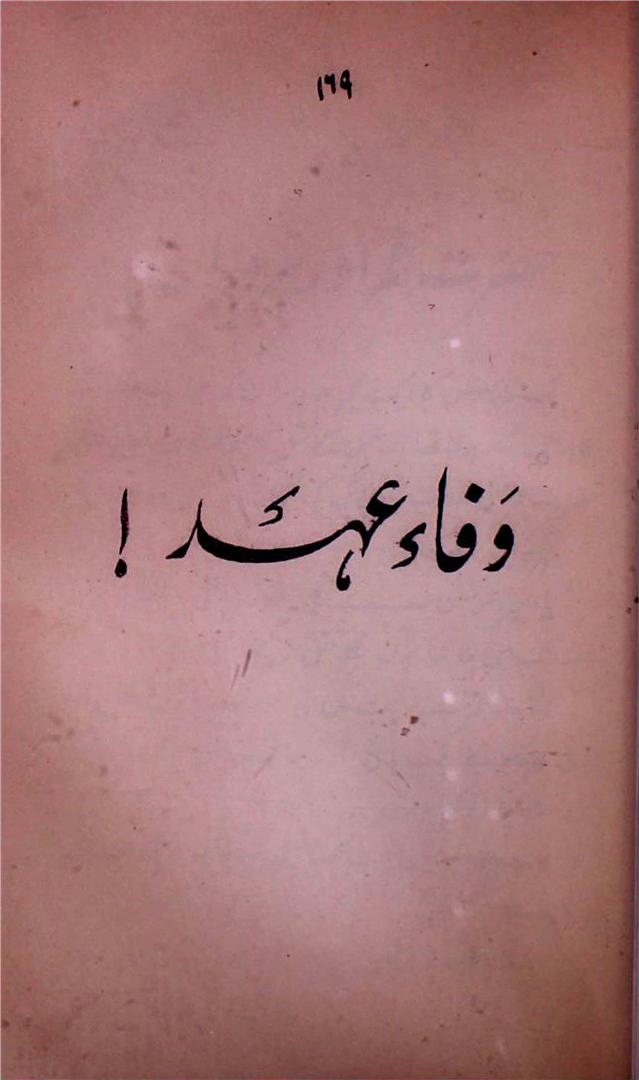 ۱۶۹
وَفاء عہْد !